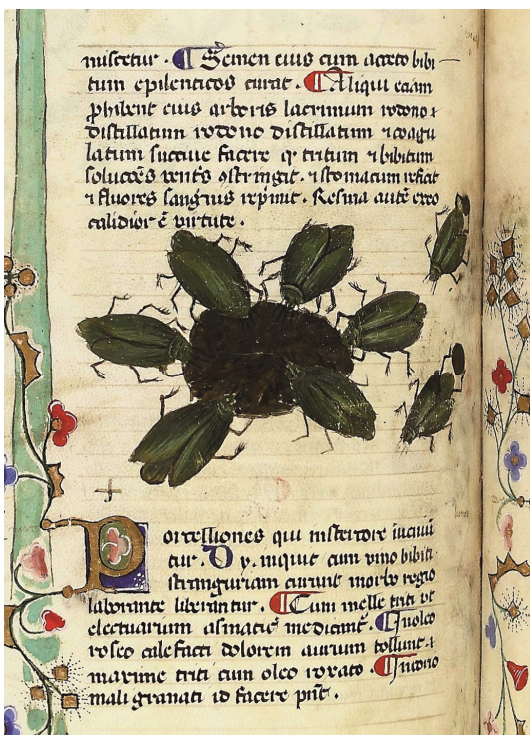 miscetur . ¶ Semen eius cum aceto bibi
tum epilenticos curat . ¶ Aliqui eciam
phibent eius arboris lacrimum rodono ⁊
distillatum rodono distillatum ⁊ coagu
latum succiue facere qr tritum ⁊ bibitum
solucōes stringit . ⁊ stomacum reficit
⁊ fluores sanguis rep̄mit . Resina autē exeo
calidior ē uirtute .
Porcelliones qui in stercore inueniū
tur . Dy . inquit cum uino bibiti
stranguriam curant morbo regio
laborante liberantur . ¶ Cum melle triti ut
electuarium asmatic medicant̄ . ¶ In oleo
roseo calefacti dolorem aurium tollunt ⁊
maxime triti cum oleo roxato . ¶
mali granati id facere pn̄t .